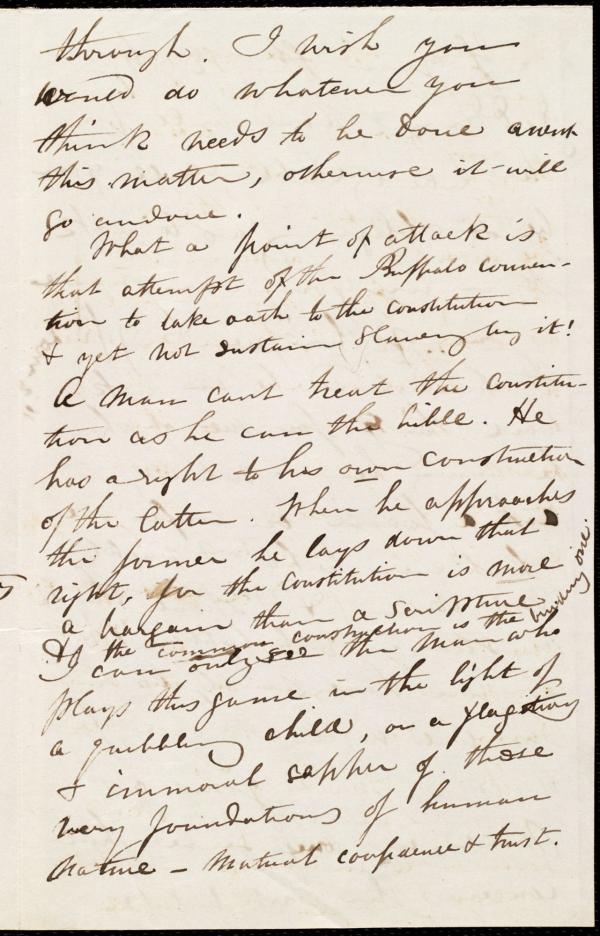 through. I wish you
would do whatever you
think needs to be done anent
this matter, otherwise it will
go undone.
What a point of attack is
that attempt of the Buffalo conven-
tion to take oath to the constitution
& yet not sustain slavery by it!
A man can't treat the constitu-
tion as he can the bible. He
has a right to his own construction
of the latter. When he approaches
the former he lays down that
right, for the constitution is more
a bargain than a scripture
& the common construction is the binding one.
I can only see the man who
plays this game in the light of
a quibbling child, or a flagitious
& immoral sapper of those
very foundations of human
nature – mutual confidence & trust.